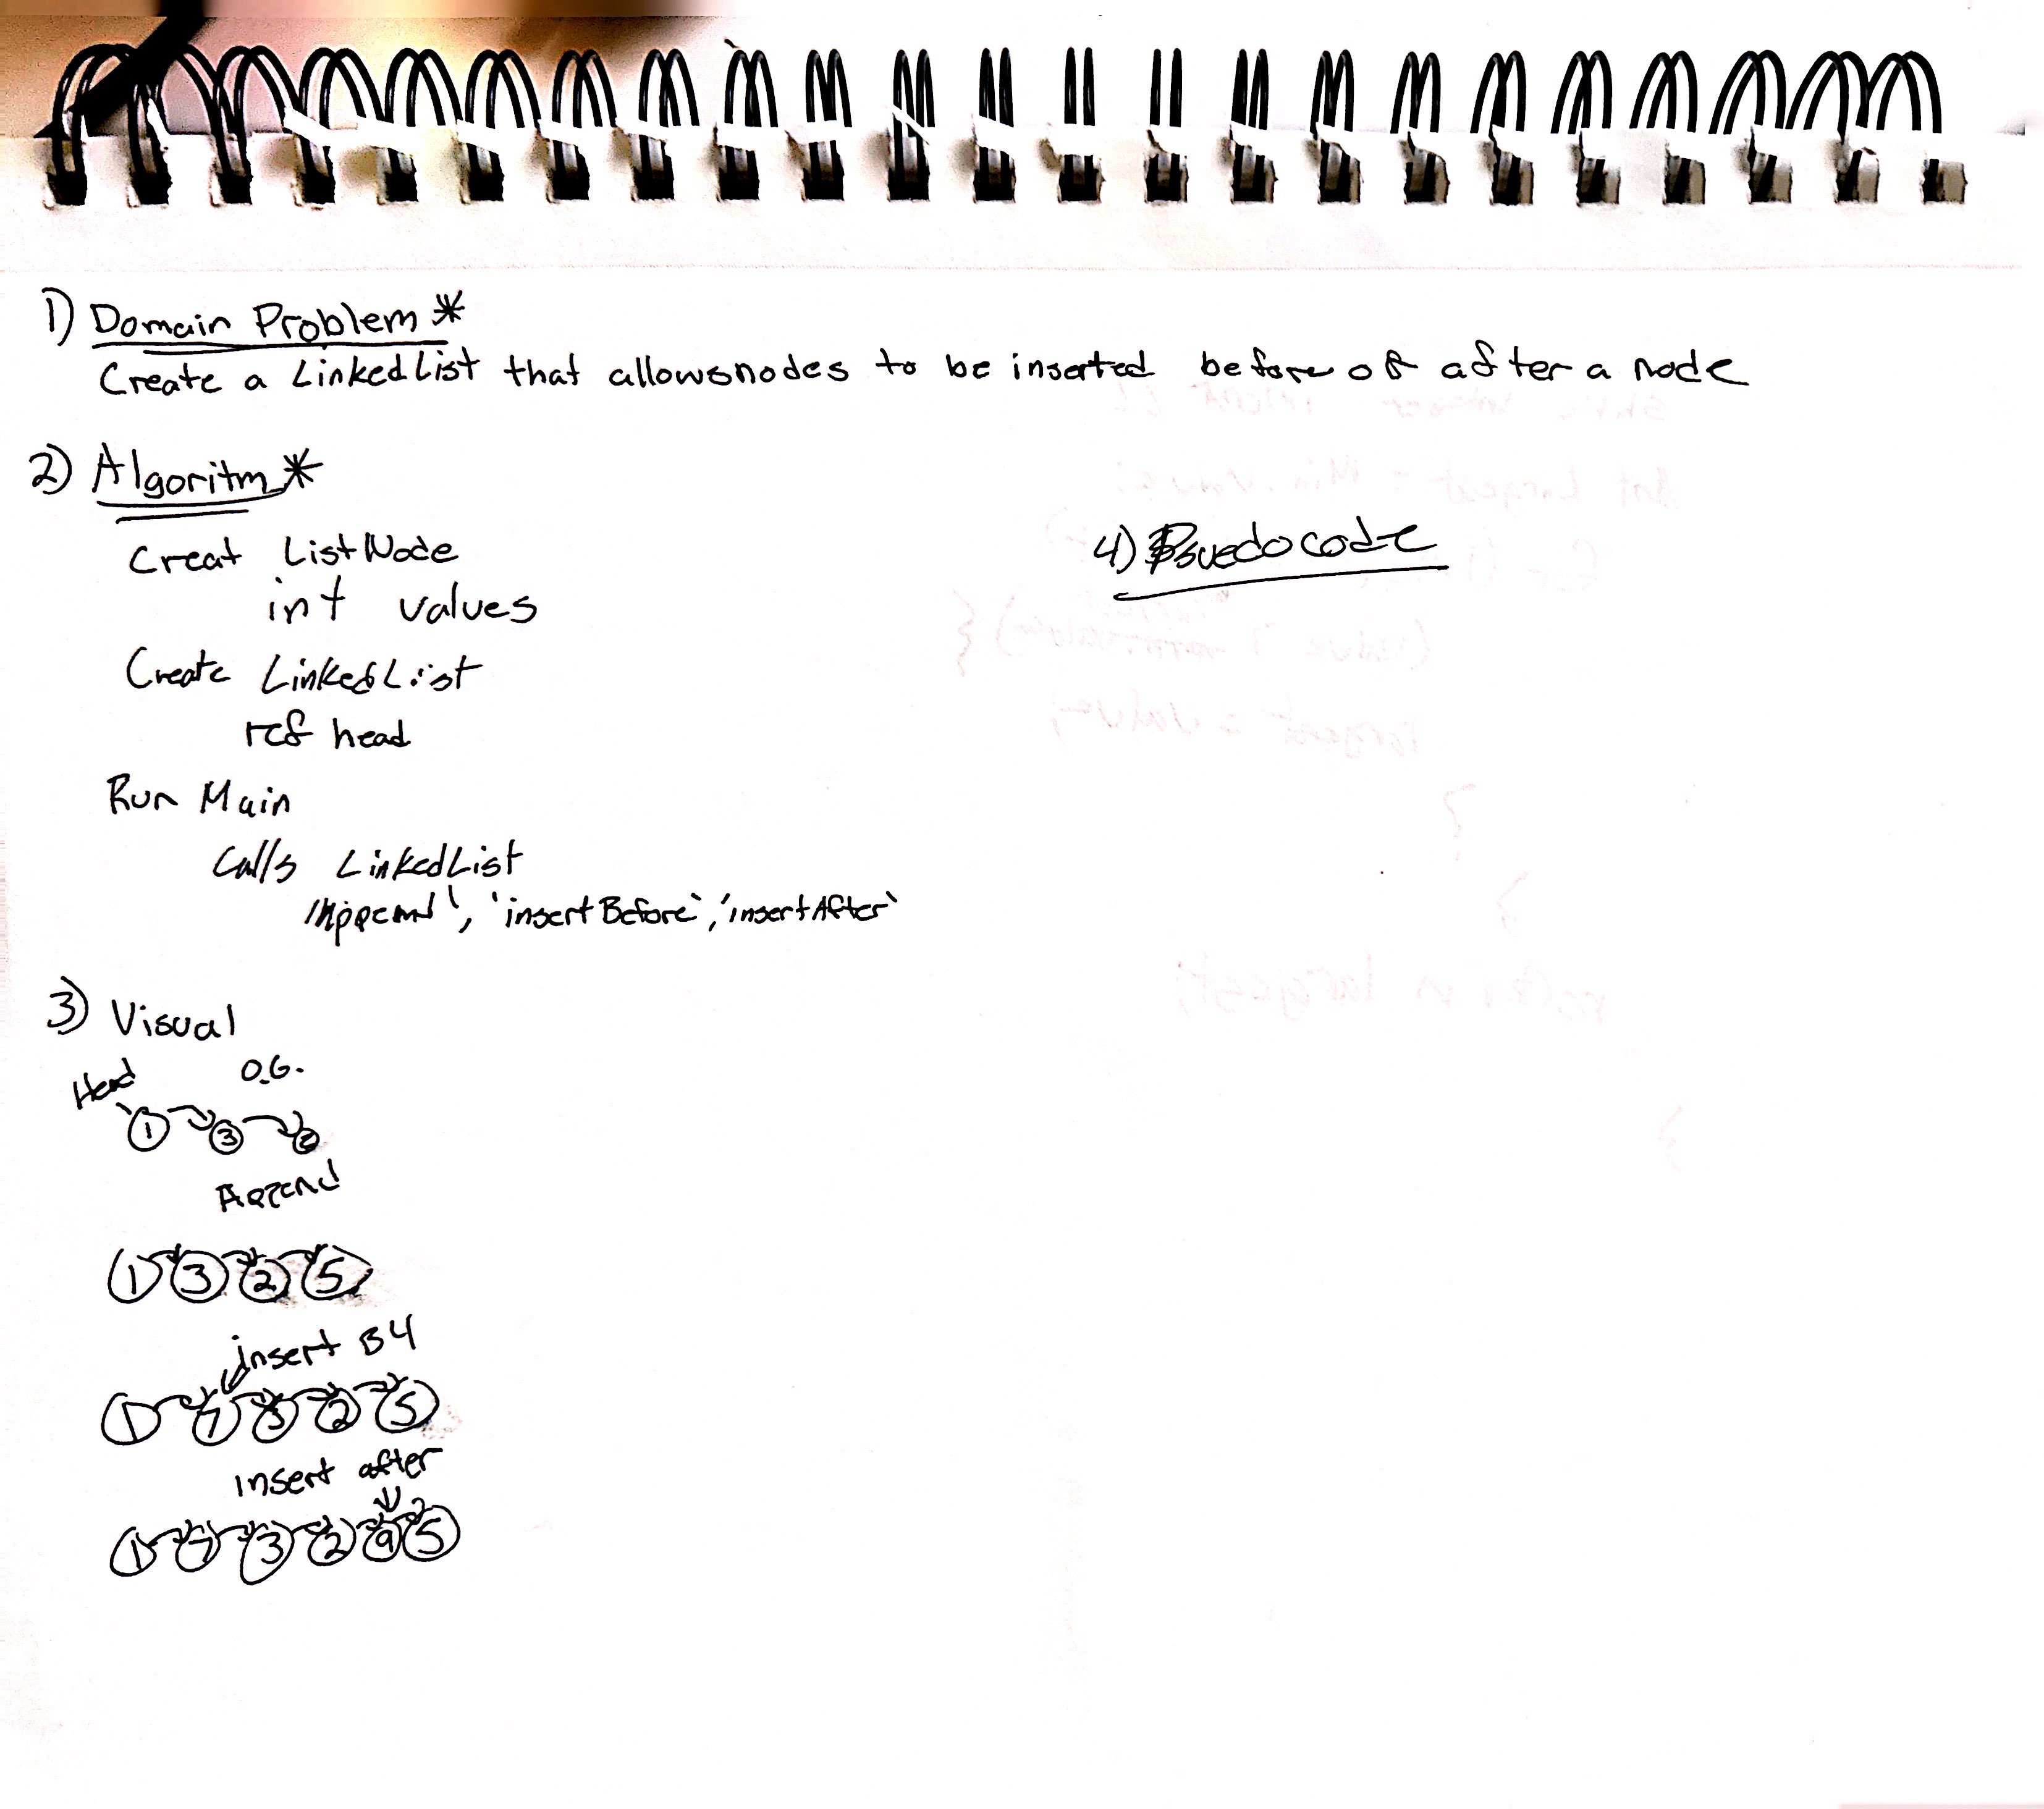 1) Domain Problem *
Create a LinkedList that allowsnodes to be inserted before or after a node
2) Algoritm *
Creat ListNode
int values
Create LinkedList
ref head
Run Main
Calls LinkedList
'Append', 'insertBefore', 'insertAfter'
3) Visual
Head O.G.
1 3 2
Append
1 3 2 5
insert B4
1 7 3 2 5
insert after
1 7 3 2 9 5
4) Psuedocode